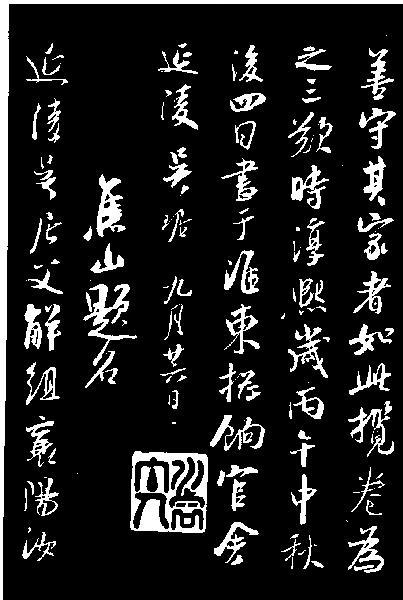 善守其家者如此攬卷為
之三歎時淳熙歲丙午中秋
後四日書于淮東揔餉官舍
延陵吳琚 九月廿六日
焦山題名
延陵吳居父解組襄陽汝